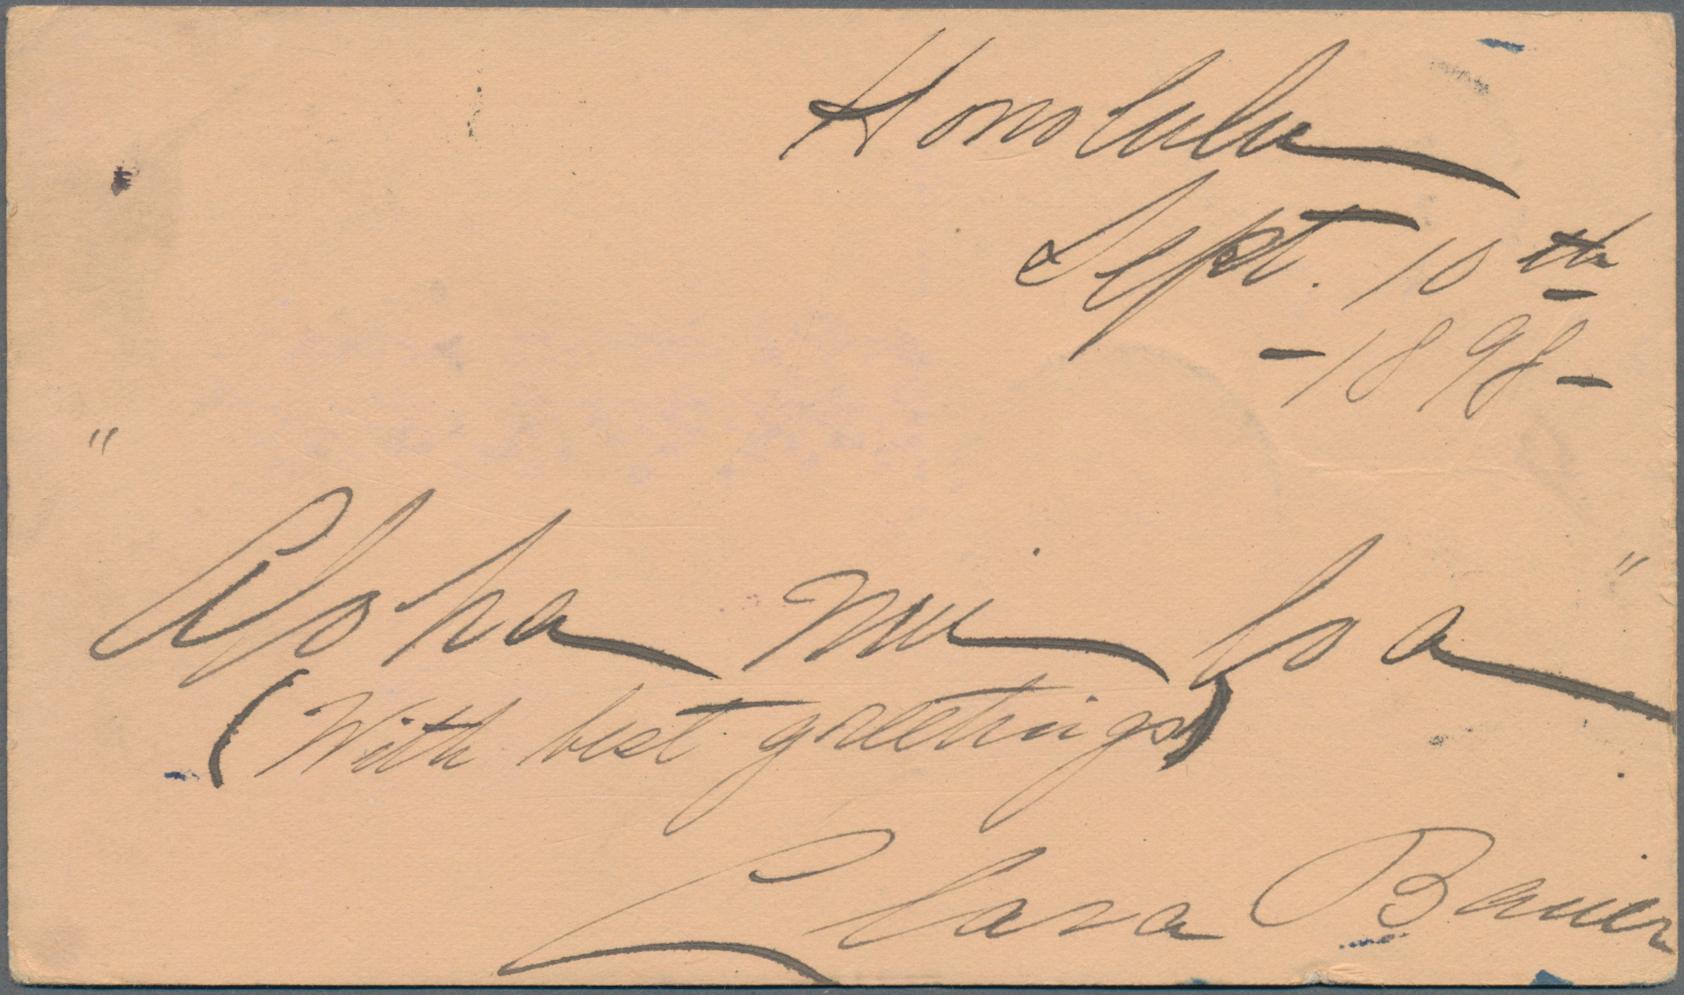 Honolulu
Sept. 10th
-1898-
"Aloha nui loa"
(With best greetings)
Clara Bauer